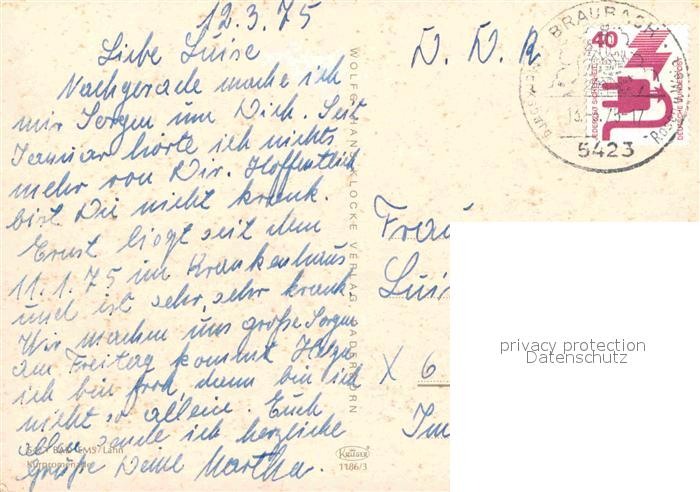 12.3.75
Liebe Luise
Nachgerade mache ich
mir Sorgen um Dich. Seit
Januar hörte ich nichts
mehr von Dir. Hoffentlich
bist Du nicht krank.
Ernst liegt seit dem
11.1.75 im Krankenhaus
und ist sehr, sehr krank.
Wir machen uns große Sorgen
am Freitag kommt
ich bin froh, dann bin ich
nicht so allein. Euch
allen sende ich herzliche
Grüße Deine Martha.
BAD EMS/Lahn
Kurpromenade
WOLFGANG KLOCKE VERLAG PADERBORN
KRÜGER
1186/3
D. D. R.
BRAUBACH
5423
40
JEDERZEIT SICHERHEIT
DEUTSCHE BUNDESPOST
Frau
Luise
X 6
Im
privacy protection
Datenschutz